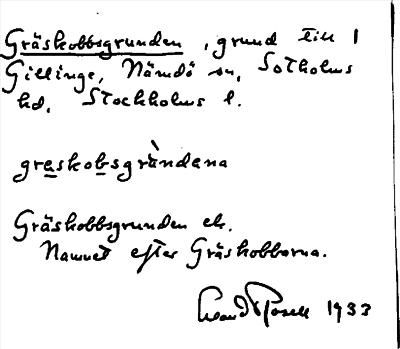 Gräskobbsgrunden, grund till 1
Gillinge, Nämdö sn, Sotholms
hd, Stockholms l.
graskobsgrùndena
Gräskobbsgrunden ek.
Namnet efter Gräskobbarna.
1933